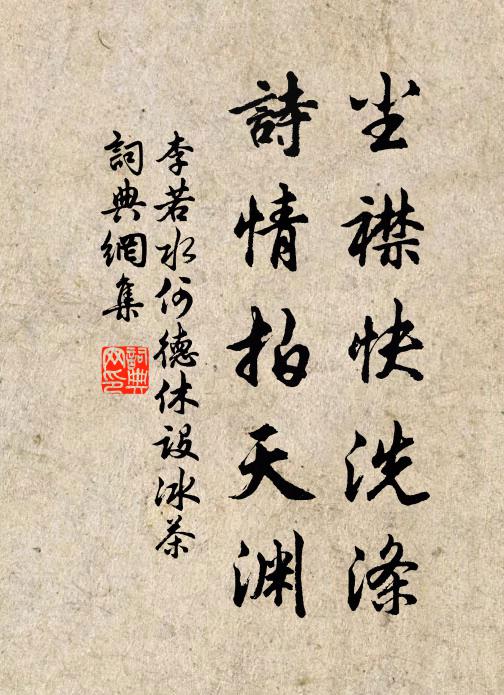 尘襟快洗滌
詩情拍天渊
李若水何德休设冰茶
詞典網集
詞典网印